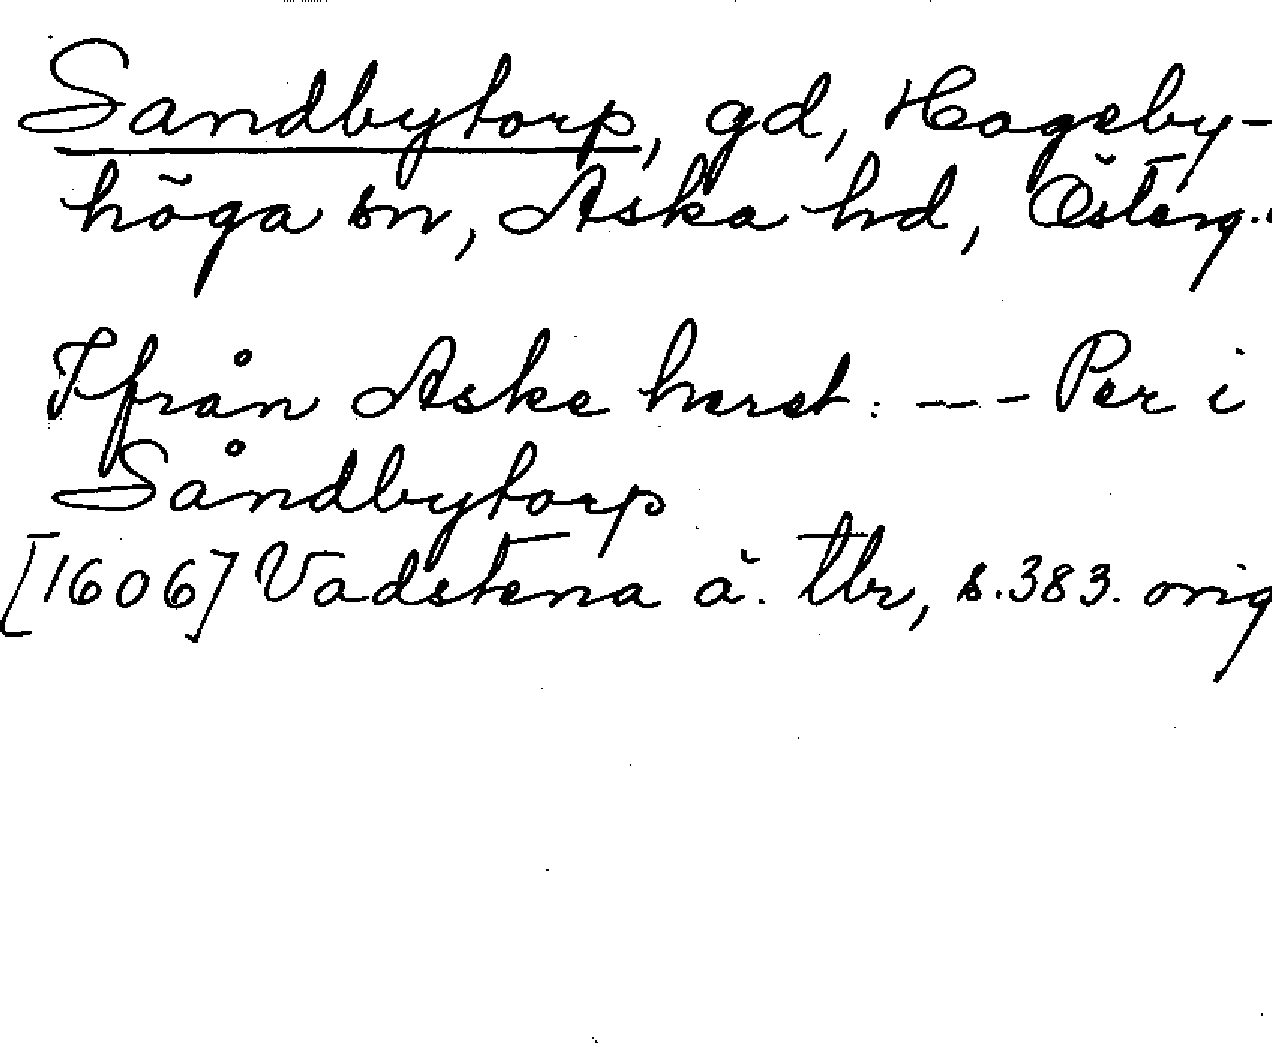 Sandbytorp, gd, Hageby-
höga sn, Aska hd, Österg..
Ifrån Aske heret: --- Per i
Såndbytorp
[1606] Vadstena ä. tbr, s. 383. orig